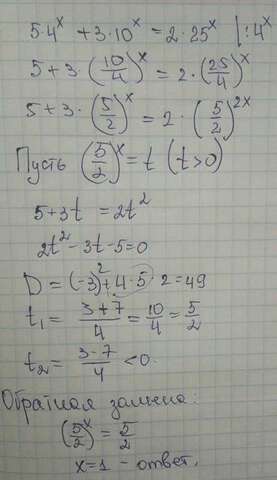 5·4^x + 3·10^x = 2·25^x | :4^x
5+3·(10/4)^x = 2·(25/4)^x
5+3·(5/2)^x = 2·(5/2)^2x
Пусть (5/2)^x = t (t>0)
5+3t = 2t²
2t² - 3t - 5 = 0
D = (-3)² + 4·5·2 = 49
t₁ = (3+7)/4 = 10/4 = 5/2
t₂ = (3-7)/4 < 0.
Обратная замена:
(5/2)^x = 5/2
x=1 - ответ.